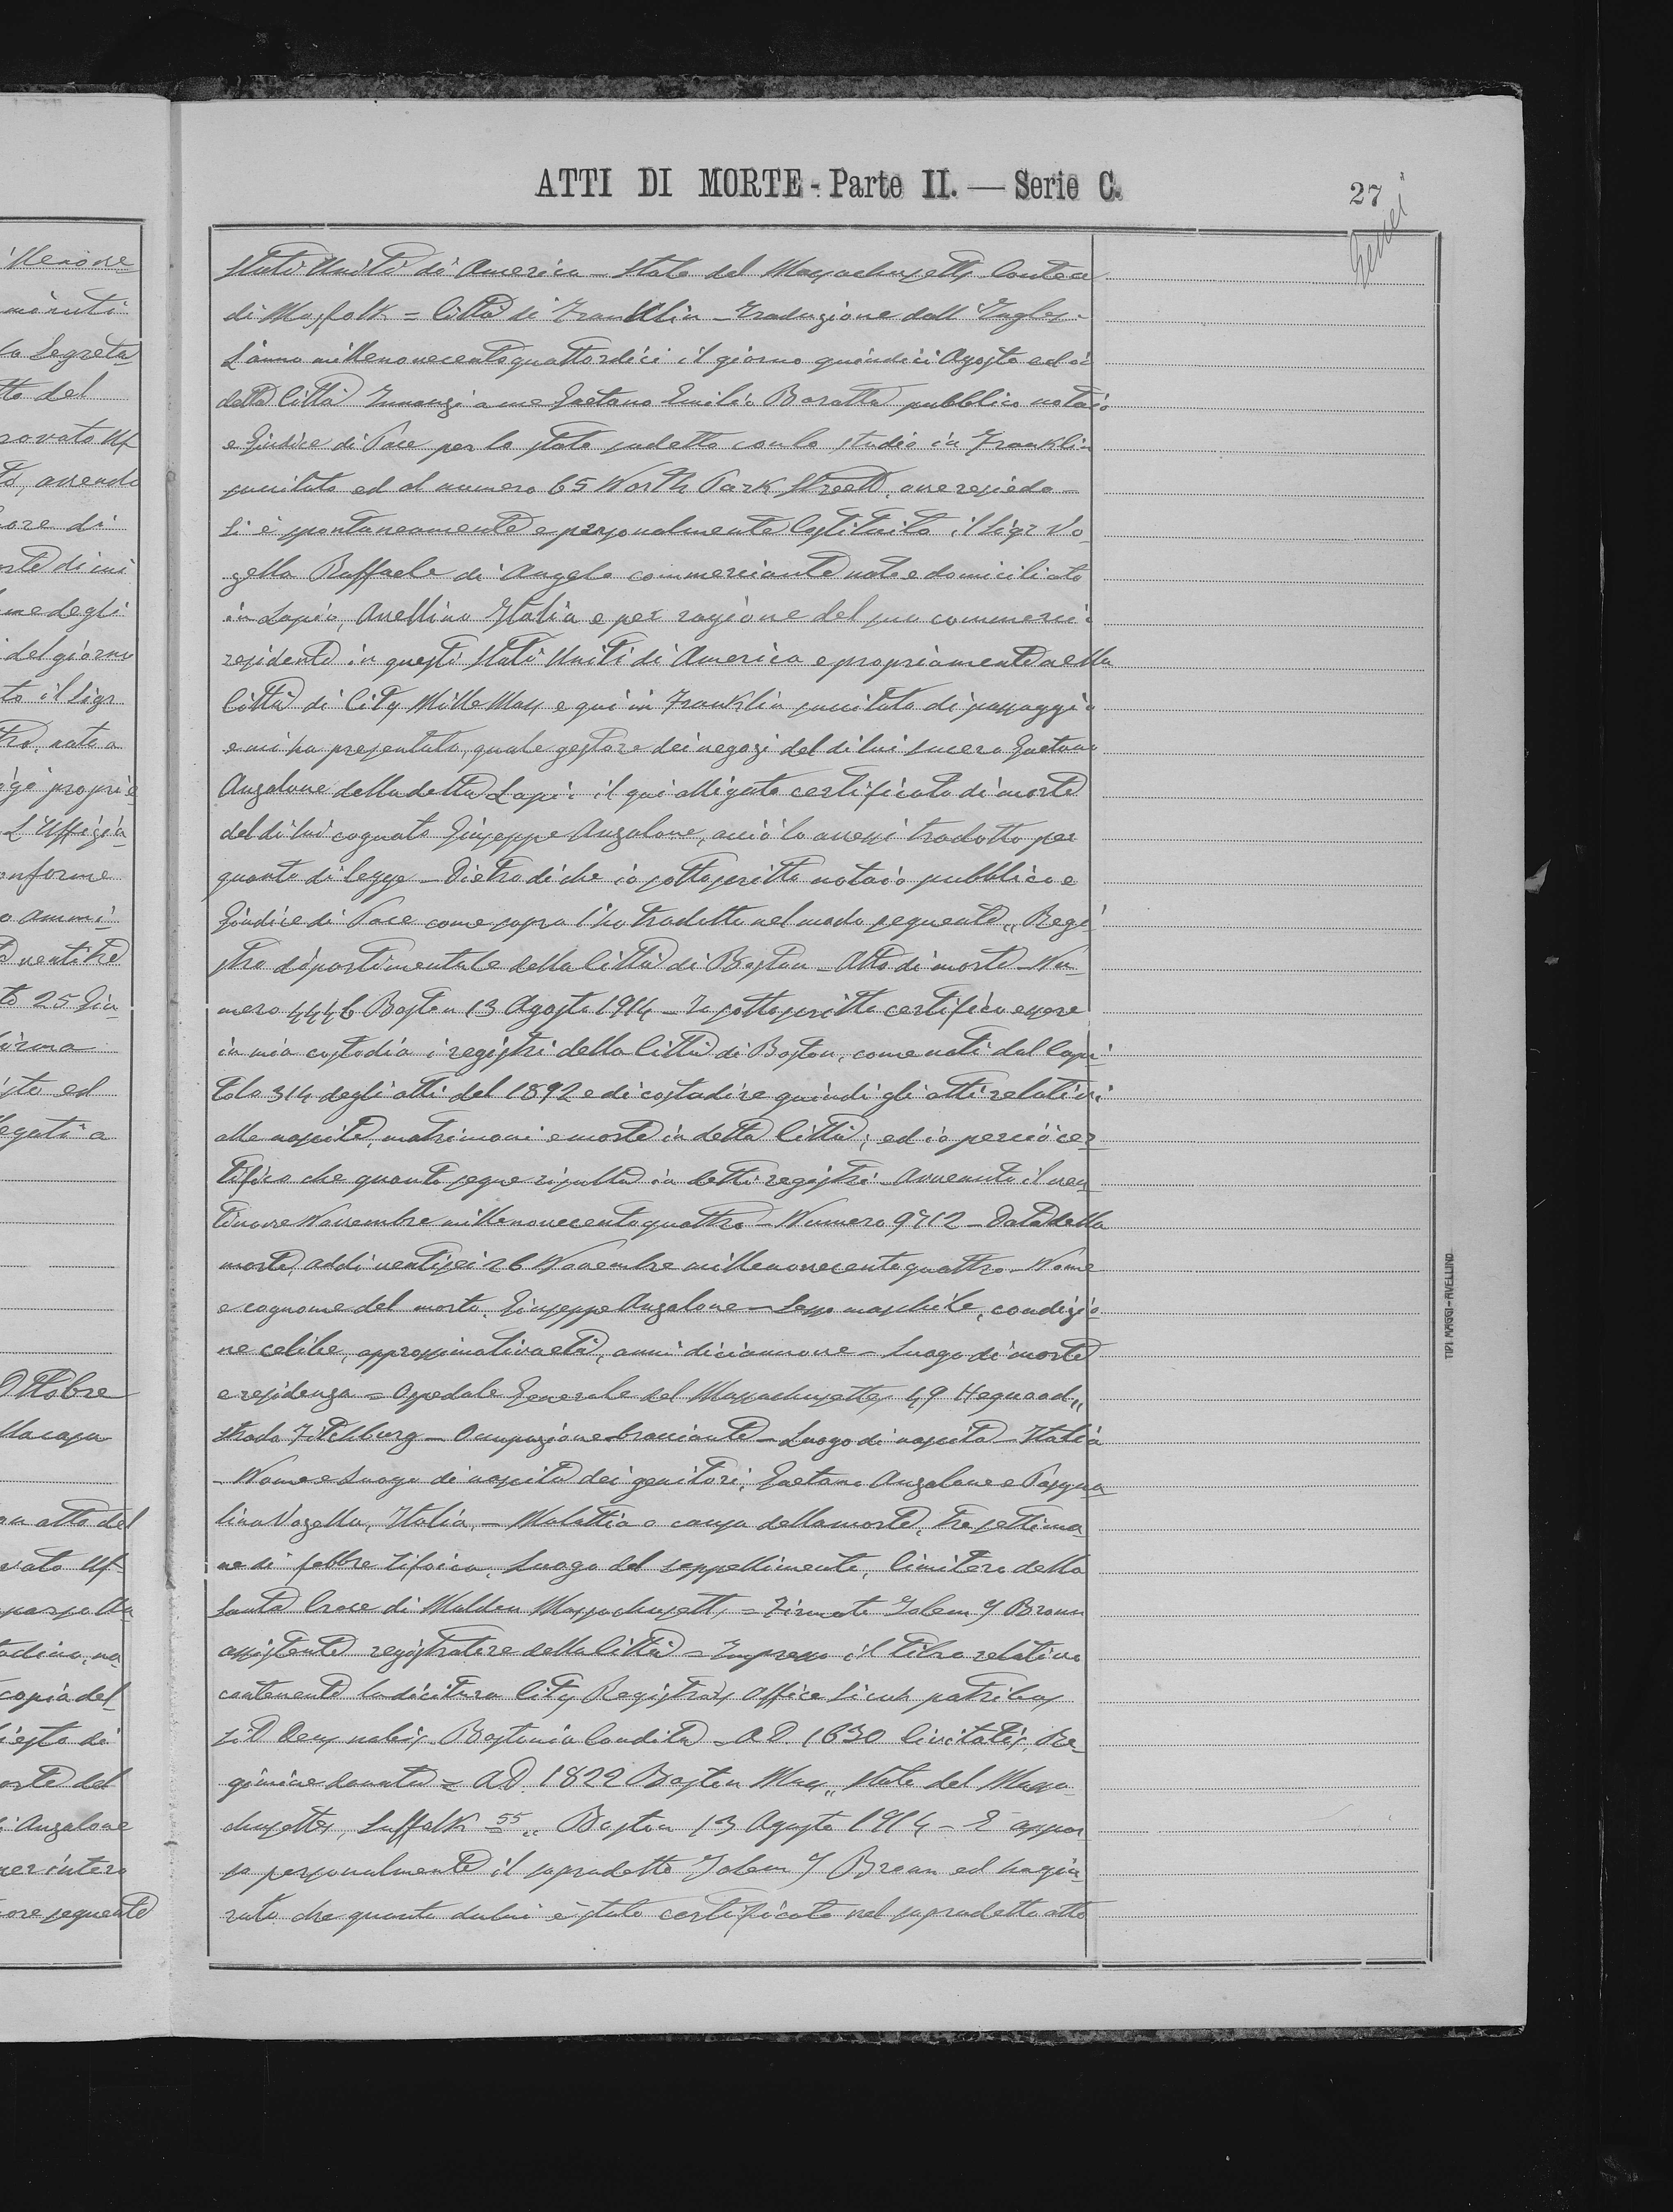 ATTI DI MORTE - Parte II. — Serie C.
27
Stati Uniti di America - Stato del Massachusetts Contea
di Norfolk = Città di Franklin - Traduzione dall'Ingles-
L'anno millenovecentoquattordici il giorno quindici Agosto ed in
detta Città Innanzi a me Gaetano Emilio Baratta pubblico notaio
e Giudice di Pace per lo stato sudetto con lo studio in Franklin
succitato ed al numero 65 North Park Street, ove resiedo -
Si è spontaneamente e personalmente Costituito il Sigr Vo
zella Raffaele di Angelo commerciante nato e domiciliato
in Lapio, Avellino Italia e per ragione del suo commerci
residente in questi Stati Uniti di America e propriamente nella
Città di City Mills Mass e qui in Franklin succitato di passaggio
e mi ha presentato, quale gestore dei negozi del di lui suocero Gaetano
Anzalone della detta Lapio il qui alligato certificato di morte
del di lui cognato Giuseppe Anzalone, acciò lo avessi tradotto per
quanto di legge - Dietro di che io sottoscritto notaio pubblico e
Giudice di Pace come sopra l'ho tradotto nel modo seguente „ Regi
stro dipartimentale della Città di Boston - Atto di morte - Nu-
mero 4446 Boston 13 Agosto 1914 - Io sottoscritto certifico essere
in mia custodia i registri della Città di Boston, come noti dal Capi
tolo 314 degli atti del 1892 e di custodire quindi gli atti relativi
alle nascite, matrimoni e morte in detta Città; ed io perciò cer
tifico che quanto segue risulta in detti registri - Avvenuto il ven
tinove Novembre millenovecentoquattro - Numero 9712 - Data della
morte, addì ventisei 26 Novembre millenovecentoquattro - Nome
e cognome del morto, Giuseppe Anzalone - Sesso maschile, condizio
ne celibe, approssimativa età, anni diciannove - Luogo di morte
e residenza = Ospedale Generale del Massachusetts 49
strada Fitchburg - Occupazione bracciante - Luogo di nascita - Italia
- Nome e Luogo di nascita dei genitori, Gaetano Anzalone e Pasqua
lina Vozella, Italia, - Malattia o causa della morte, tre settima
ne di febbre tifoica, Luogo del seppellimento, Cimitero della
Santa Croce di Malden Massachusett, = Firmato Iolem Y Broun
assistente registratore della Città = Impresso il titro relativo
contenente la dicitura City Registrars Office Sicut patribus
sit Deus nobis Bostonia Condita - A.D. 1630 Civitatis, Re-
gimine donata = A.D. 1822 Boston Mass „ Stato del Massa
chusetts, Suffolk = 55 „ Boston 13 Agosto 1914 - È appar
so personalmente il sopradetto Iolem Y Broun ed ha giu
rato che quanto da lui è stato certificato nel sopradetto atto
TIPI MAGGI - AVELLINO
minuti
la Segreta
tto del
ovato Uf
avendo
ore di
me degli
del giorno
to il Sigr
nato a
proprie
L'Uffizia
onforme
o ammi
ventitre
to 25 Giu
firma
sto ed
egati a
Ottobre
un atto del
vato Uf
copia del
iesto di
orte del
i Anzalone
per intero
ore seguente